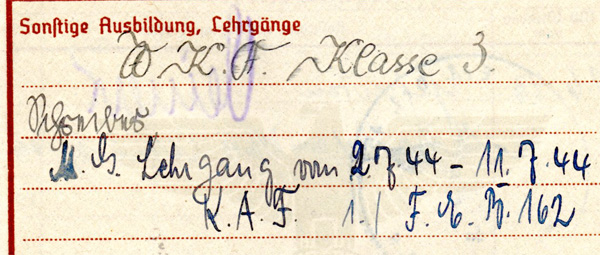 Sonstige Ausbildung, Lehrgänge
W K. F. Klasse 3.
Schreiber
M. G. Lehrgang vom 2.7.44 - 11.7.44
K. A. F. 1./ F. E. B. 162